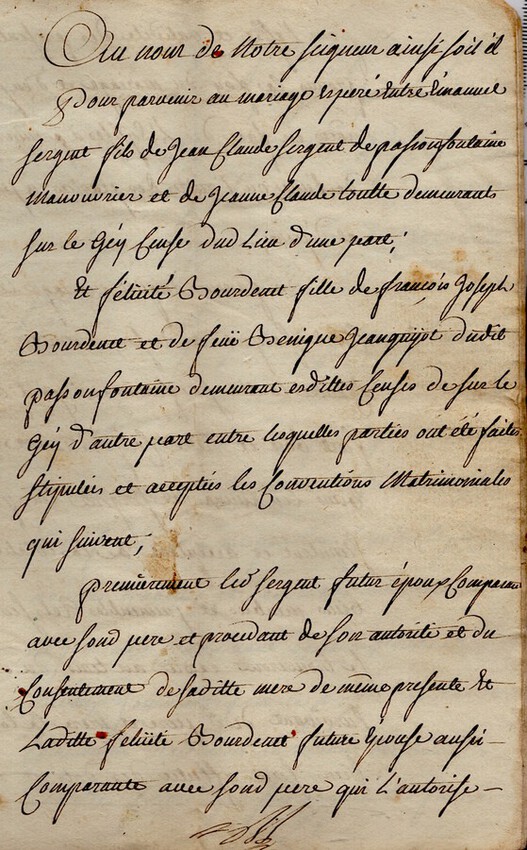 Au nom de Notre Seigneur ainsi soit il
Pour parvenir au mariage Espéré Entre Emanuel
Sergent fils de Jean Claude Sergent de passonfontaine
Manouvrier et de Jeanne Claude demeurants
sur le Gey Cense dud Lieu d'une part;
Et félicité Bourdenet fille de françois Joseph
Bourdenet et de feüe Benigne Jeanguyot dudit
passonfontaine demeurant esdittes Censes de sur le
Gey d'autre part entre lesquelles parties ont été faites
stipulées et acceptées les Conventions Matrimoniales
qui suivent;
premièrement led Sergent futur époux Comparant
avec sond pere et procedant de son autorité et du
Consentement de saditte mere de même presente Et
Laditte felicité Bourdenet future Epouse aussi
Comparante avec sond pere qui L'autorise